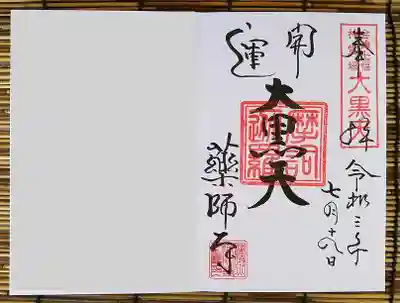 奉拝
大黒天
令和三年
七月十八日
開運
大黒天
藥師寺